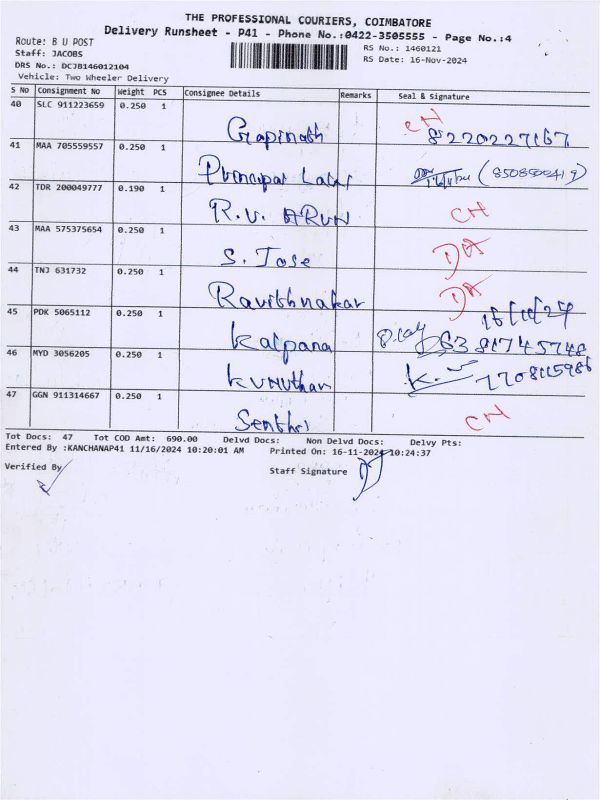 THE PROFESSIONAL COURIERS, COIMBATORE
Delivery Runsheet - P41 - Phone No.:0422-3505555 - Page No.:4
Route: B U POST
Staff: JACOBS
DRS No.: DCJB146012104
Vehicle: Two Wheeler Delivery
RS No.: 1460121
RS Date: 16-Nov-2024
S No Consignment No Weight PCS Consignee Details Remarks Seal & Signature
40 SLC 911223659 0.250 1 Gopinath CH 8220227167
41 MAA 705559557 0.250 1
42 TDR 200049777 0.190 1 R.U. ARUN CH
43 MAA 575375654 0.250 1 S. Jose DA
44 TNJ 631732 0.250 1 DA
45 PDK 5065112 0.250 1 Kalpana 16/11/24 6381745748
46 MYD 3056205 0.250 1 7708115986
47 GGN 911314667 0.250 1 CH
Tot Docs: 47 Tot COD Amt: 690.00 Delvd Docs: Non Delvd Docs: Delvy Pts:
Entered By :KANCHANAP41 11/16/2024 10:20:01 AM Printed On: 16-11-2024 10:24:37
Verified By
Staff Signature